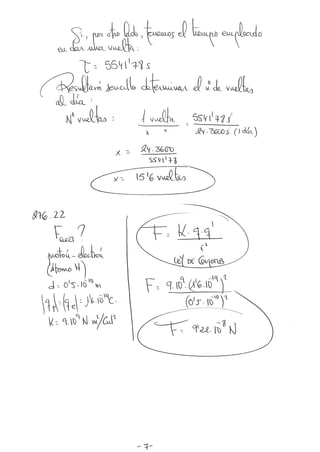 Si, por otro lado, tenemos el tiempo empleado
en dar una vuelta:
T = 5541'78 s
¿Resultará sencillo determinar el nº de vueltas
al día:
Nº vueltas: 1 vuelta = 5541'78 s
x " 24·3600 s (1 día)
x = 24·3600 / 5541'78
x = 15'6 vueltas
276.22
F ?
protón-electrón
(átomo H)
d = 0'5·10⁻¹⁰ m
|qp| = |qe| = 1'6·10⁻¹⁹ C.
K = 9·10⁹ N m²/Cul²
F = K·q·q' / r²
Ley de Coulomb
F = 9·10⁹·(1'6·10⁻¹⁹)² / (0'5·10⁻¹⁰)²
F = 9'22·10⁻⁸ N
-7-